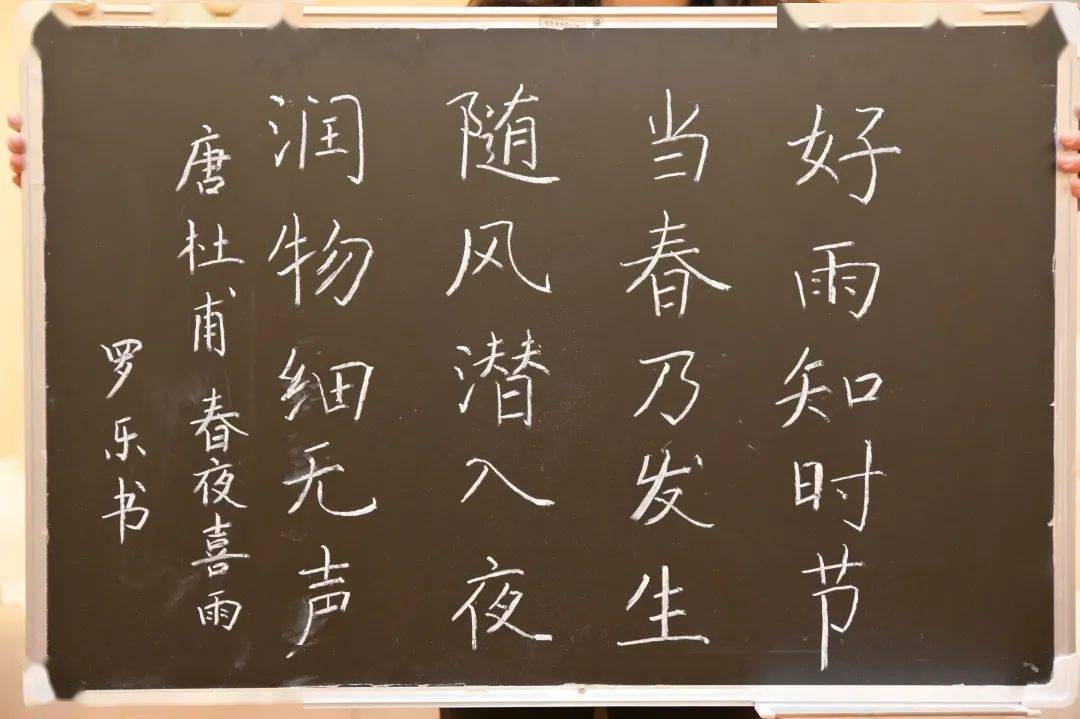 好雨知时节
当春乃发生
随风潜入夜
润物细无声
唐杜甫 春夜喜雨
罗乐书